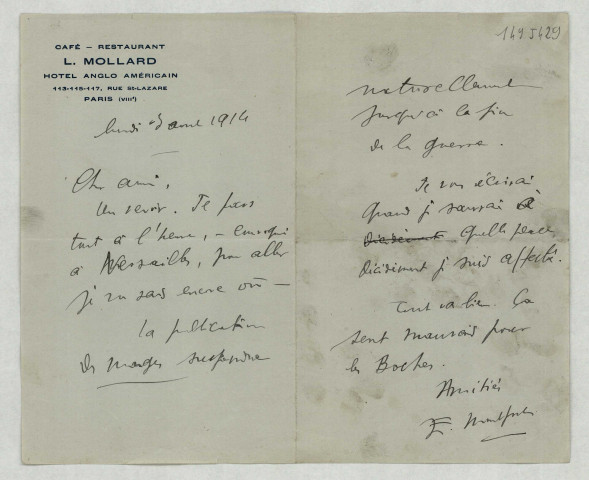 CAFÉ – RESTAURANT
L. MOLLARD
HOTEL ANGLO AMÉRICAIN
113-115-117, RUE St-LAZARE
PARIS (VIIIe)
lundi 3 aout 1914
Cher ami,
Un revoir. Je pars
tout à l'heure, –
à Versailles, pour aller
je ne sais encore où –
La publication
des Marges suspendue
149 5429
naturellement
jusqu'à la fin
de la guerre.
Je vous écrirai
quand je saurai à
décidément quelle place
décidément je suis affecté.
Tout va bien. Ça
sent mauvais pour
les Boches.
Amitiés
E. Montfort